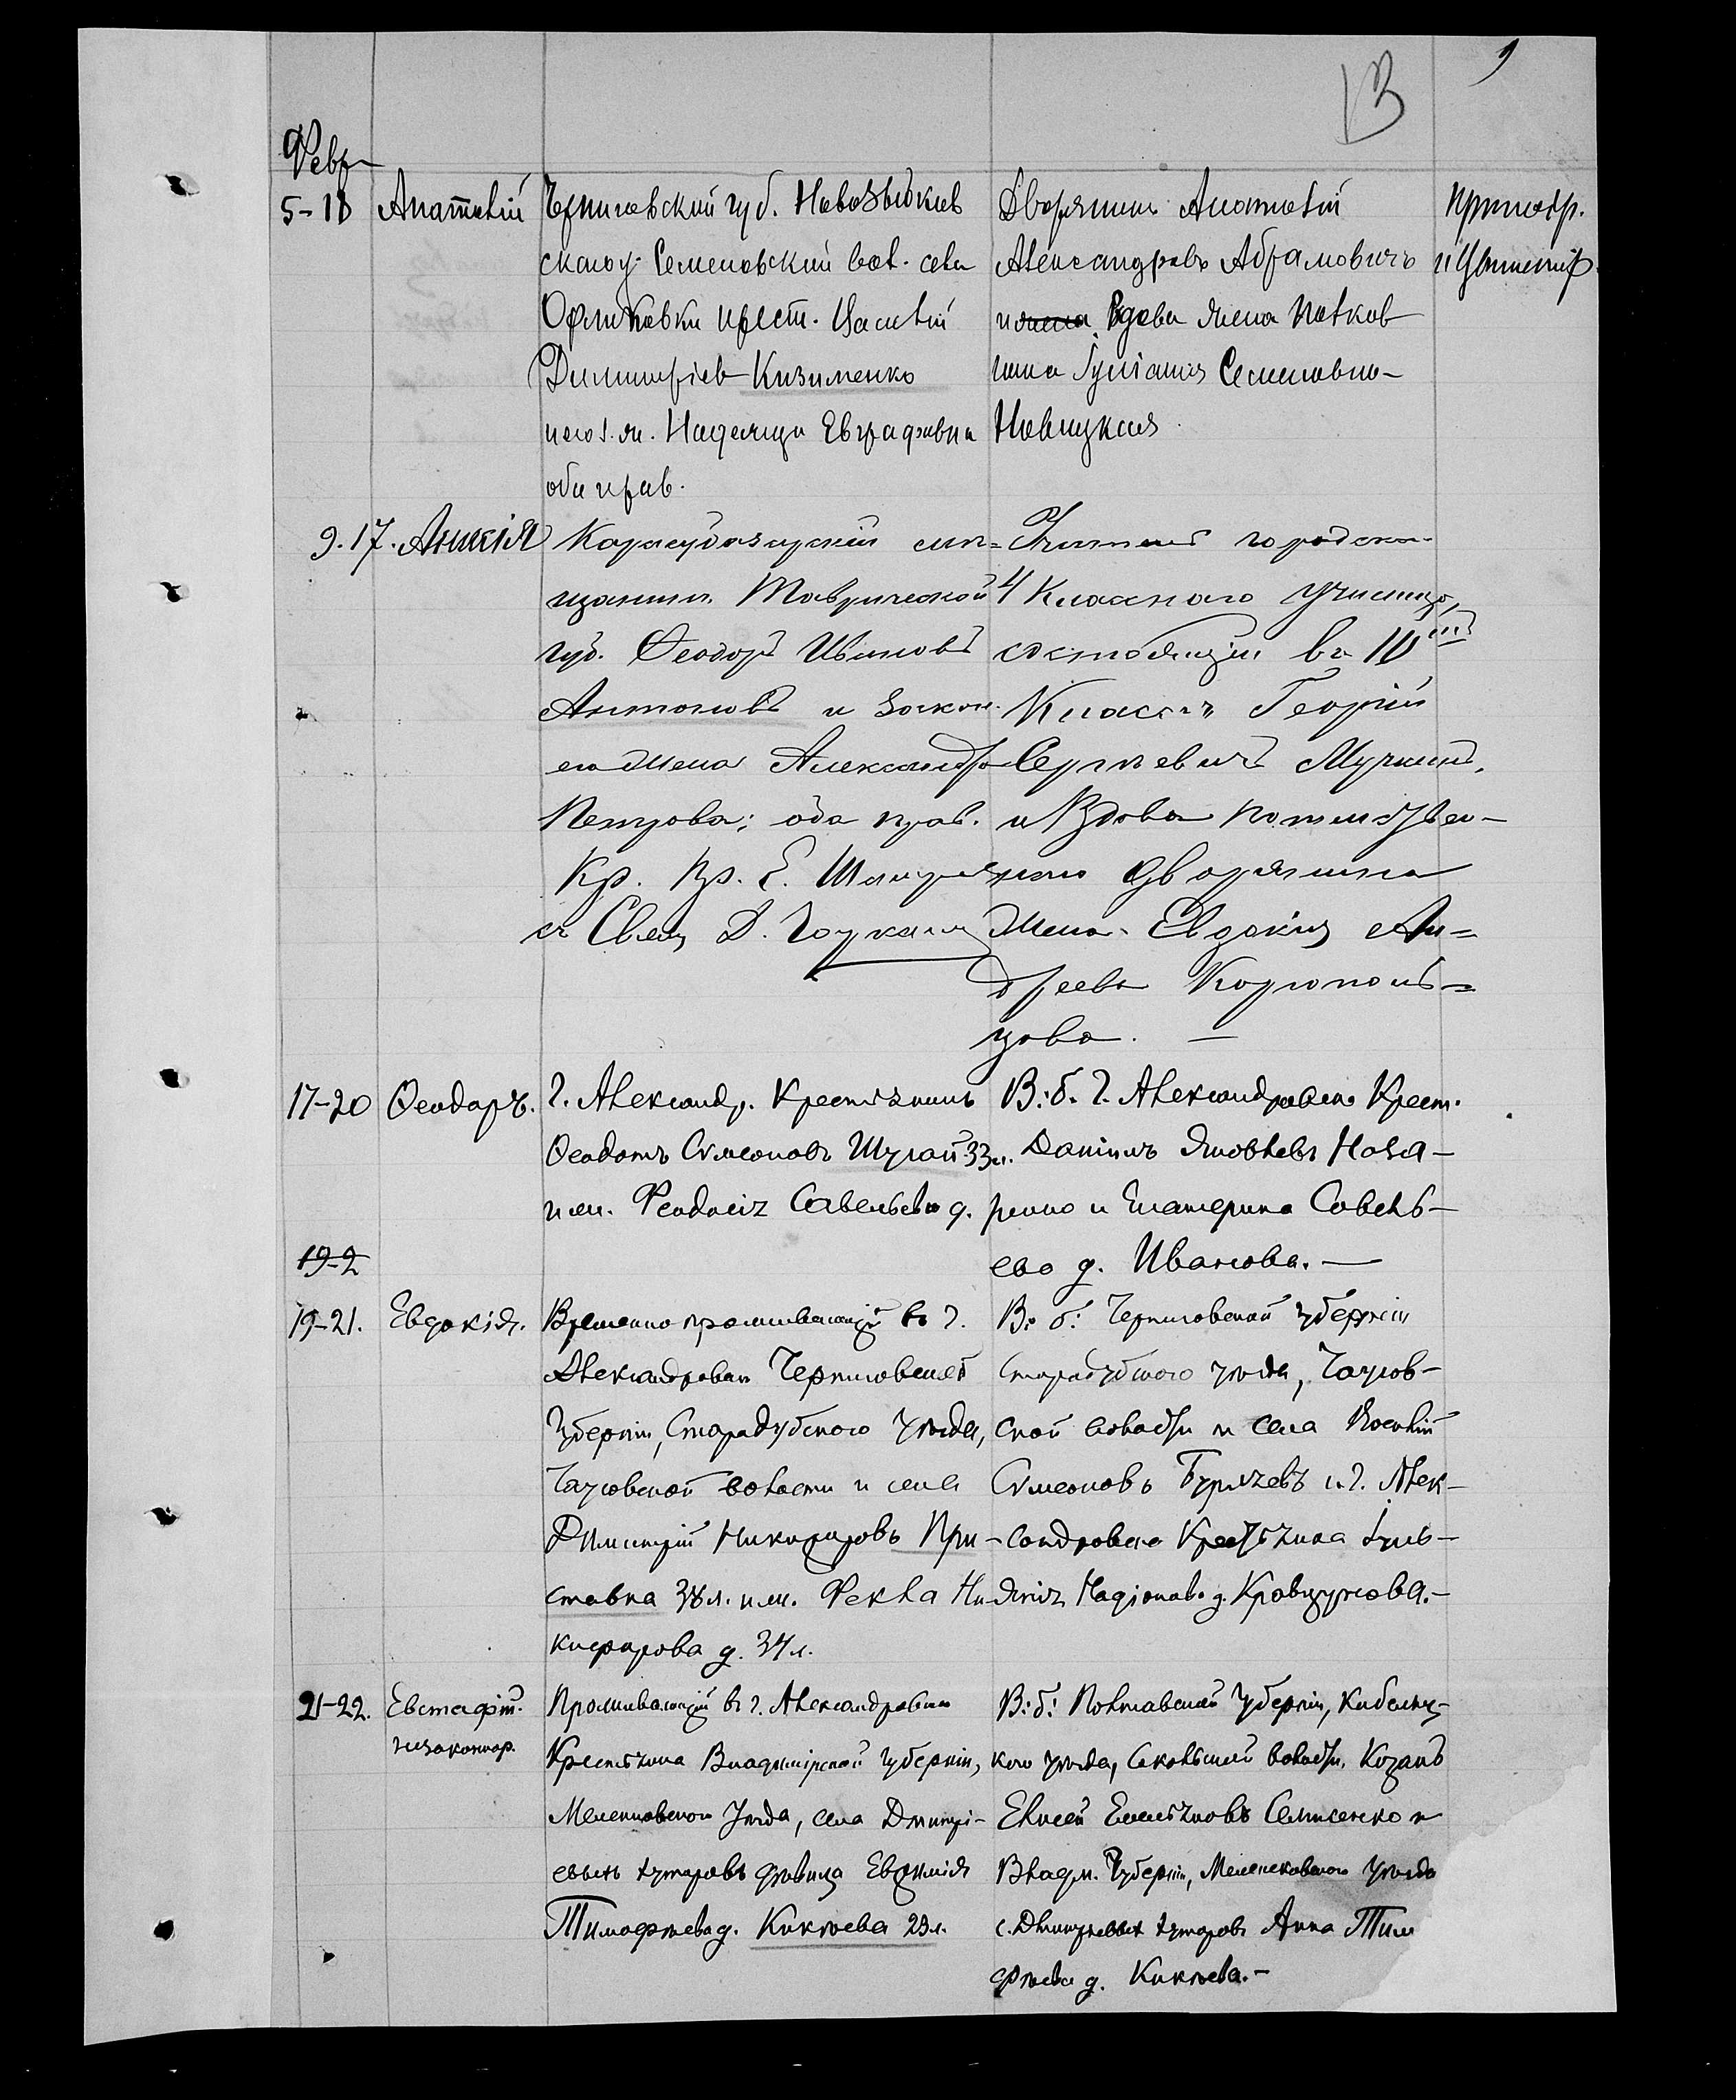 13
Февр
5-18 Анатолій Черниговской губ. Новозыбков
скаго у. Семеновской вол. села
Орликовки крест. Василій
Димитріев Кизименко
и его з. ж. Надежда Евграфовна
оба прав.
Дворянин Анатолій
Александровъ Абрамовичъ
и жена Вдова жена Полков
ника Іуліанія Семеновна
Протоіер.
9.17. Анисія Карасубазарскій мѣ=
щанин Таврической
губ. Ѳеодоръ Ивановъ
Антоновъ и закон.
его жена Александра
Петрова; оба прав.
Кр. Пр. Е.
съ Свящ. Д.
Учитель городского
4 Класснаго училища,
состоящій въ
Классѣ Георгій
Сергѣевичъ
и Вдова потомствен-
наго дворянина
жена Евдокія Ан=
дреева
цова. —
17-20 Ѳеодоръ. Г. Александр. Крестьянинъ
Ѳеодотъ Сѵмеоновъ Шугай 33 л.
и ж. Ѳеодосія Савельева д.
В: б. Г. Александровска Крест.
Даніилъ Яковлевъ Наза-
ренко и Екатерина Савель-
ева д. Иванова. —
19-2
19-21. Евдокія. Временно проживающій въ г.
Александровскѣ Черниговской
Губерніи, Стародубскаго Уѣзда,
волости и села
Димитрій Никифоровъ При-
ставка 38 л. и ж. Ѳекла Ни-
кифорова д. 34 л.
В: б: Черниговской губерніи
Стародубскаго уѣзда,
ской волости и села
Сѵмеоновъ и г. Алек-
сандровска Крестьянка Іулі-
анія д. Кравцунова.—
21-22. Евстафій.
незаконнор.
Проживающій въ г. Александровскѣ
Крестьянка Владимірской Губерніи,
Меленковскаго Уѣзда, села Дмитрі-
евыхъ хуторовъ дѣвица Евфимія
Тимофѣева д. Киклева 29 л.
В: б: Полтавской Губерніи, Кобеляц-
каго уѣзда, Сокольской волости, Козакъ
Елисей Емельяновъ Семисенко и
Владим. Губерніи, Меленковскаго Уѣзда
с. Дмитріевыхъ хуторовъ Анна Тим
фѣева д. Киклева.—